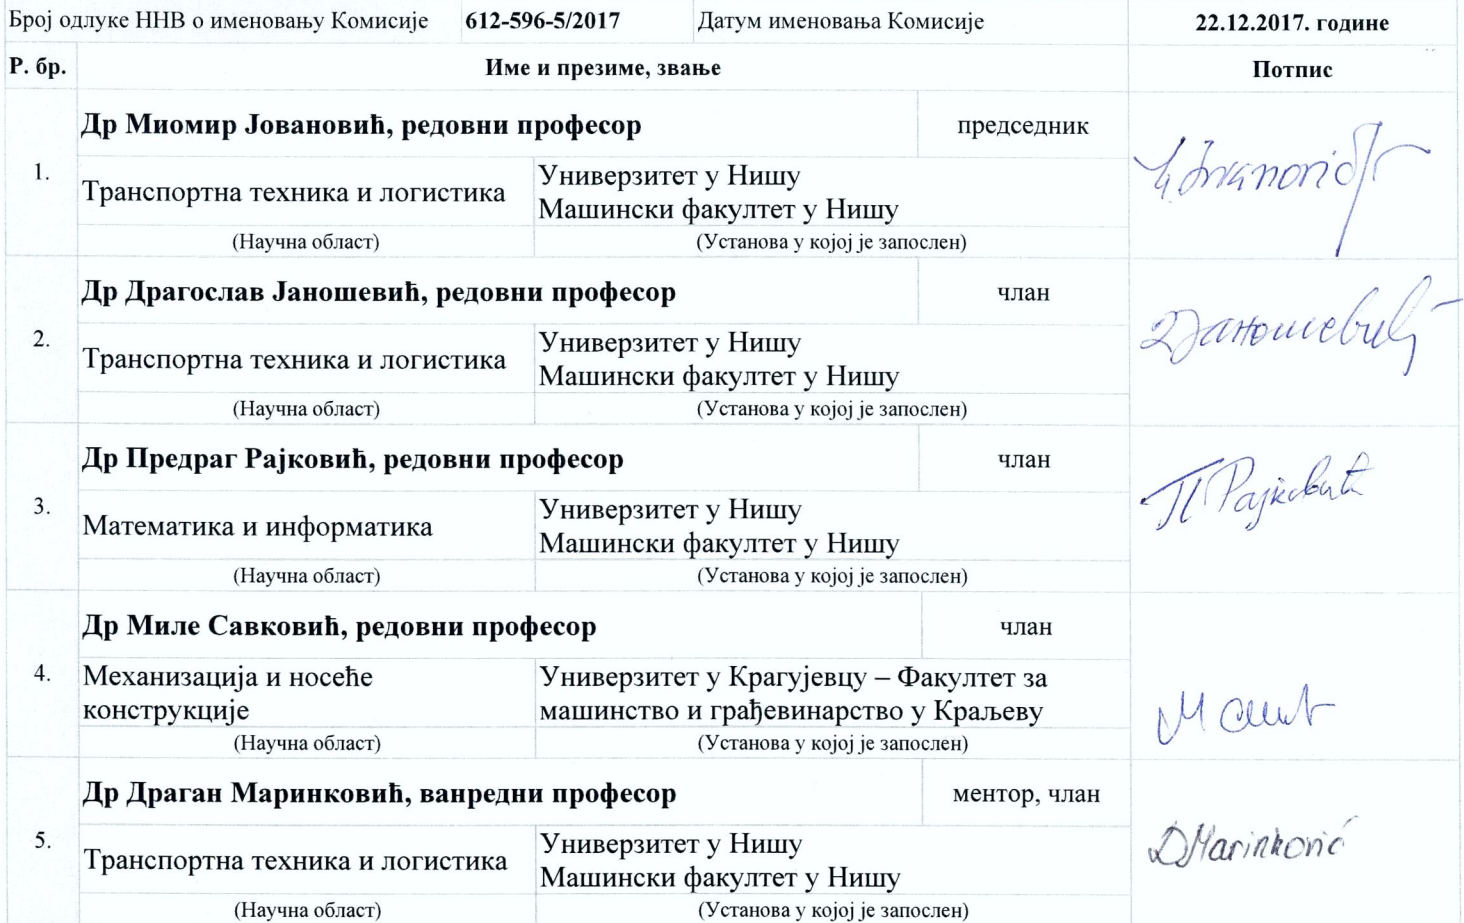 Број одлуке ННВ о именовању Комисије 612-596-5/2017 Датум именовања Комисије 22.12.2017. године
Р. бр. Име и презиме, звање Потпис
Др Миомир Јовановић, редовни професор председник
1.
Транспортна техника и логистика
Универзитет у Нишу
Машински факултет у Нишу
(Научна област) (Установа у којој је запослен)
Др Драгослав Јаношевић, редовни професор члан
2.
Транспортна техника и логистика
Универзитет у Нишу
Машински факултет у Нишу
(Научна област) (Установа у којој је запослен)
Др Предраг Рајковић, редовни професор члан
П Рајковић
3.
Математика и информатика
Универзитет у Нишу
Машински факултет у Нишу
(Научна област) (Установа у којој је запослен)
Др Миле Савковић, редовни професор члан
4.
Механизација и носеће
конструкције
Универзитет у Крагујевцу – Факултет за
машинство и грађевинарство у Краљеву
(Научна област) (Установа у којој је запослен)
Др Драган Маринковић, ванредни професор ментор, члан
DMarinković
5.
Транспортна техника и логистика
Универзитет у Нишу
Машински факултет у Нишу
(Научна област) (Установа у којој је запослен)